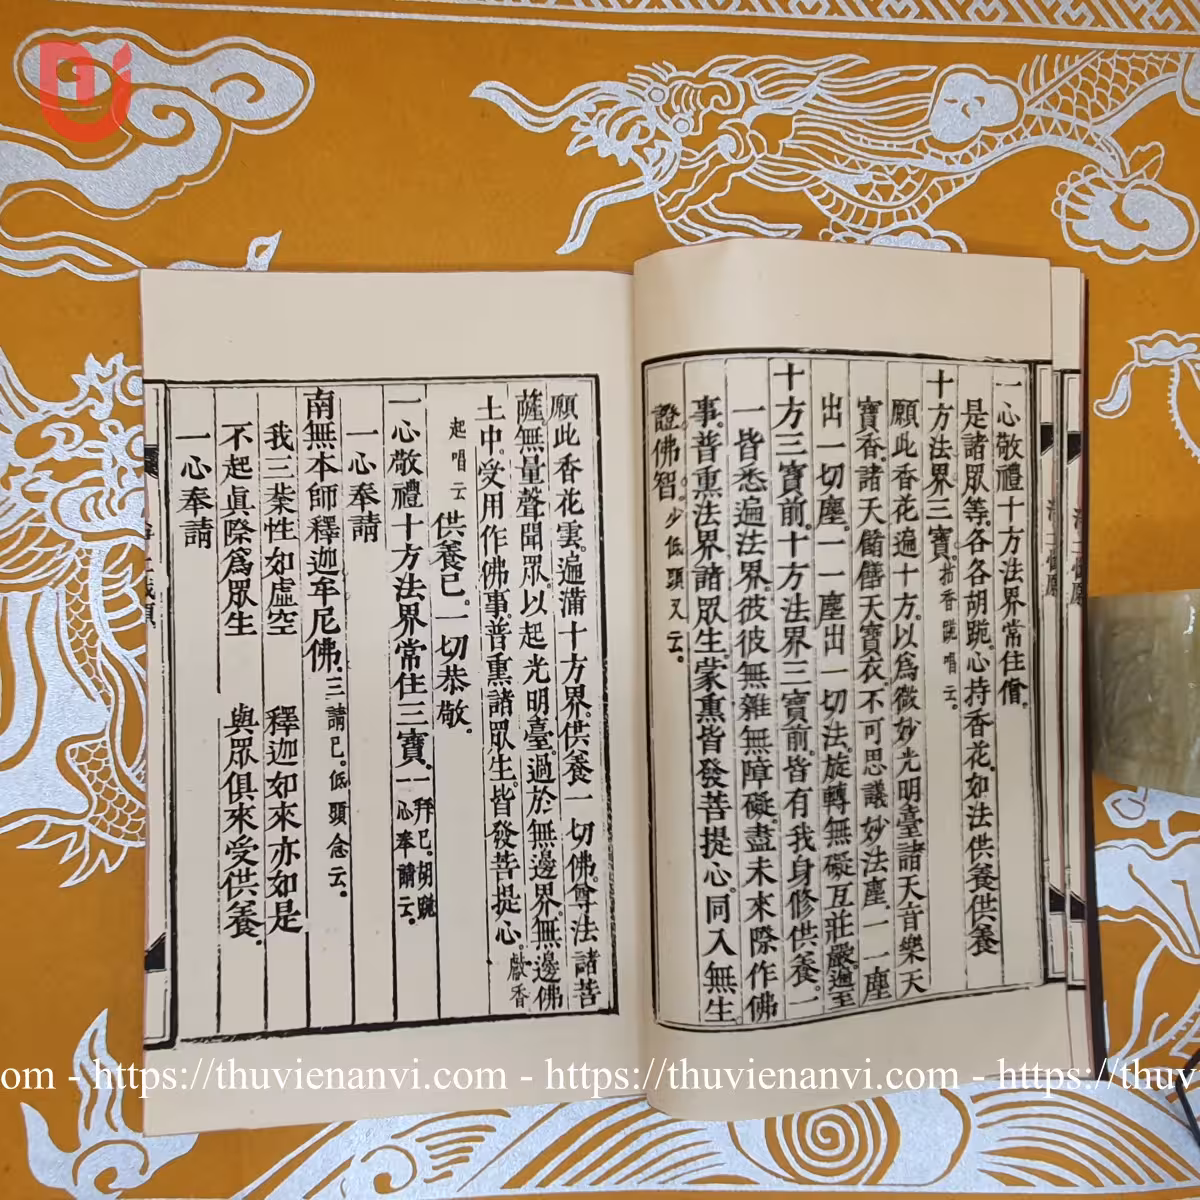 一心敬禮十方法界常住僧。
是諸眾等。各各胡跪。心持香花。如法供養供養
十方法界三寶。拈香跪唱云。
願此香花遍十方。以為微妙光明臺諸天音樂天
寶香。諸天餚饍天寶衣。不可思議妙法塵。一一塵
出一切塵。一一塵出一切法。旋轉無礙互莊嚴。遍至
十方三寶前。十方法界三寶前。皆有我身修供養。一
一皆悉遍法界。彼彼無雜無障礙。盡未來際作佛
事。普熏法界諸眾生蒙熏皆發菩提心。同入無生。
證佛智。少低頭又云。
願此香花雲。遍滿十方界。供養一切佛。尊法諸菩
薩。無量聲聞眾。以起光明臺。過於無邊界。無邊佛
土中。受用作佛事。普熏諸眾生。皆發菩提心。獻香
起唱云 供養已。一切恭敬。
一心敬禮十方法界常住三寶。一拜已。胡跪一心奉請云。
一心奉請
南無本師釋迦牟尼佛。三請已。低頭念云。
我三業性如虛空 釋迦如來亦如是
不起眞際為眾生 與眾俱來受供養。
一心奉請
https://thuvienanvi.com - https://thuvienanvi.com